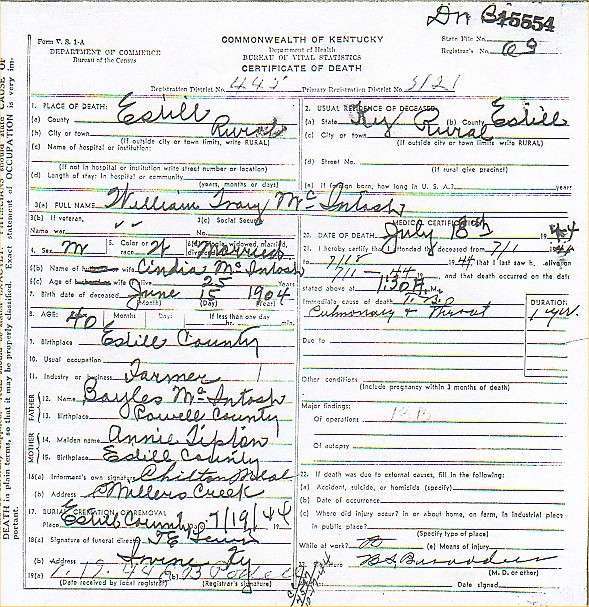 Dn B 15554
Form V. S. 1-A
DEPARTMENT OF COMMERCE
Bureau of the Census
COMMONWEALTH OF KENTUCKY
Department of Health
BUREAU OF VITAL STATISTICS
CERTIFICATE OF DEATH
State File No.
Registrar's No.
Registration District No. 445 Primary Registration District No. 5121
1. PLACE OF DEATH:
(a) County Estill
(b) City or town Rural
(If outside city or town limits, write RURAL)
(c) Name of hospital or institution:
(If not in hospital or institution write street number or location)
(d) Length of stay: In hospital or community
(years, months or days)
2. USUAL RESIDENCE OF DECEASED
(a) State Ky (b) County Estill
(c) City or town Rural
(If outside city or town limits, write RURAL)
(d) Street No.
(If rural give precinct)
(e) If foreign born, how long in U. S. A.? years
3(a) FULL NAME William Tracy McIntosh
3(b) If veteran,
Name war
3(c) Social Security
No.
4. Sex M 5. Color or race W 6(a) Single, widowed, married, divorced Married
6(b) Name of husband or wife Cindia McIntosh
6(c) Age of husband or wife if alive 25 Years
7. Birth date of deceased June 15 1904
(Month) (Day) (Year)
8. AGE: 40 Months Days If less than one day
hr. min.
9. Birthplace Estill County
10. Usual occupation
11. Industry or business Farmer
FATHER
12. Name Bayles McIntosh
13. Birthplace Powell County
MOTHER
14. Maiden name Annie Tipton
15. Birthplace Estill County
16(a) Informant's own signature Chilton Neal
(b) Address Millers Creek
17. BURIAL, CREMATION OR REMOVAL
Place Estill County 7/19/44
18(a) Signature of funeral director
(b) Address Irvine Ky
19(a)
(Date received by local registrar) (Registrar's signature)
MEDICAL CERTIFICATION
20. DATE OF DEATH July 18th 1944
21. I hereby certify that I attended the deceased from 7/1 1944
to 7/18 1944 that I last saw h alive on
7/11 44, and that death occurred on the date
stated above at 1:30 A M.
Immediate cause of death
DURATION
Pulmonary & Throat 1 yr.
Due to
Other conditions
(Include pregnancy within 3 months of death)
Major findings:
Of operations
Of autopsy
22. If death was due to external causes, fill in the following:
(a) Accident, suicide, or homicide (specify)
(b) Date of occurrence
(c) Where did injury occur? in or about home, on farm, in industrial place
in public place?
(Specify type of place)
While at work? (e) Means of injury
(M. D. or other)
Date signed
DEATH in plain terms, so that it may be properly classified. Exact statement of OCCUPATION is very important.